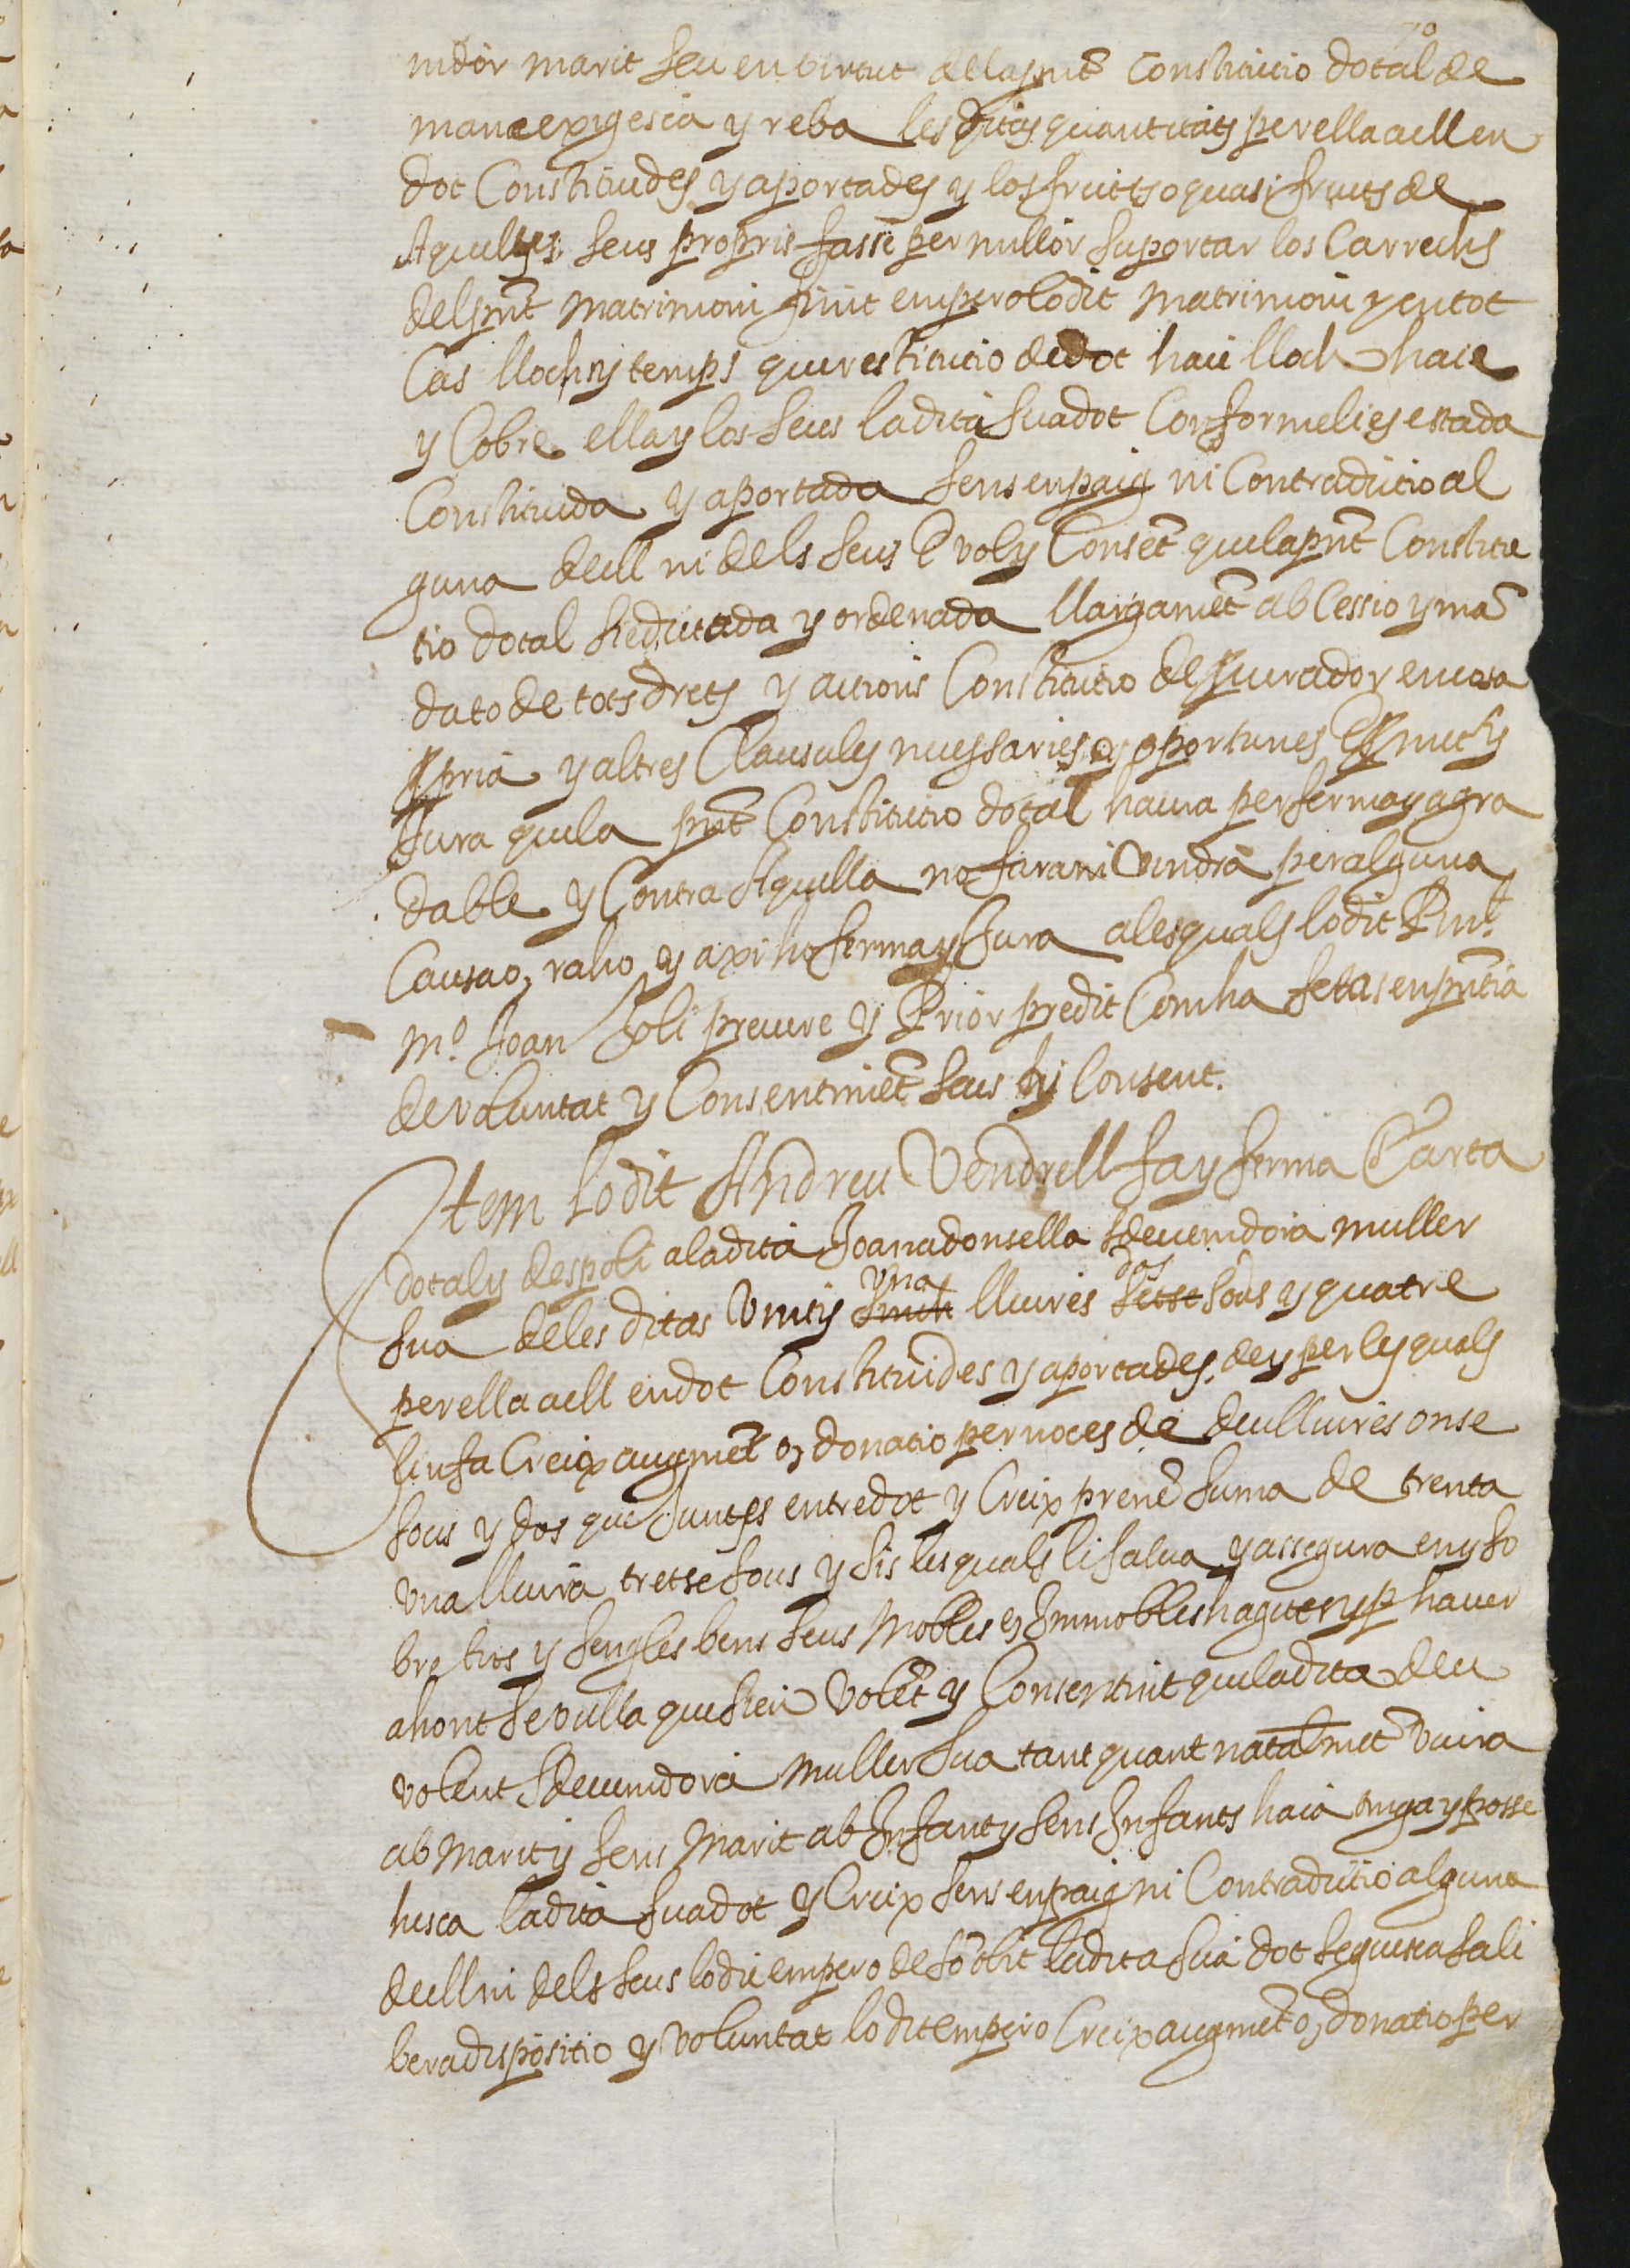 70
nidor marit seu en virtut de la pnt Constitutio dotal de
mane exigesca y reba les ditas quantitats per ella a ell en
dot Constitudes y aportades y los fruits o quasi fruits de
Aquelles seus propris fasse per millor suportar los Carrechs
del pnt matrimoni finit empero lo dit matrimoni y en tot
Cas lloch y temps que restitutio de dot haie lloch haie
y Cobre ella y los seus la dita sua dot Conforme li es estada
Constituida y aportada sens enpaig ni Contradictio al
guna de ell ni dels seus E vol y Conset que la pnt Constitu
tio dotal sie dictada y ordenada llargamet ab Cessio y ma
dato de tots drets y actions Constitutio de Pcurador en cosa
ppria y altres Clausules nessaries y oportunes E pmet y
Jura que la pnt Constitutio dotal haura per ferma y agra
dable y Contra Aquella no fara ni vindra per alguna
Causa o, raho y axi ho ferma y Jura a les quals lo dit Rnt
mo. Joan Soli prevere y Prior predit Com ha fetas en pntia
de voluntat y Consentimet seus hi Consent.
Item lo dit Andreu Vendrell fa y ferma Carta
dotal y despoli a la dita Joana donsella sdevenidora muller
sua de les ditas vint y una lliures dos sous y quatre
per ella a ell en dot Constituides y aportades, de y per les quals
li n fa Creix augmet o, donatio per noces de deu lliures onse
sous y dos que Juntes entre dot y Creix prene suma de trenta
una lliura tretse sous y sis les quals li salva y assegura en y so
bre tots y sengles bens seus Mobles e, Immobles haguts y p haver
ahont se vulla que sien volet y Consentint que la dita deu
volent sdevenidora muller sua tant quant natalmet viura
ab marit y sens marit ab Infants y sens Infants haia tinga y posse
hesca la dita sua dot y Creix sens enpaig ni Contradictio alguna
de ell ni dels seus lo die empero de so obit la dita sua dot seguesca sa li
bera dispositio y voluntat lo dit empero Creix augmet o, donatio per